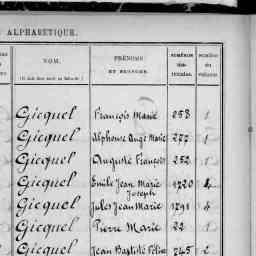 ALPHABÉTIQUE.
NOM. PRÉNOMS ET SURNOMS. NUMÉROS NUMÉRO du volume.
Gicquel François Marie 258 1
Gicquel Alphonse Ange Marie 277 1
Gicquel Auguste François 252 1
Gicquel Emile Jean Marie Joseph 1720 4
Gicquel Jules Jean Marie 1791 4
Gicquel Pierre Marie 22 1
Gicquel Jean Baptiste 745 2